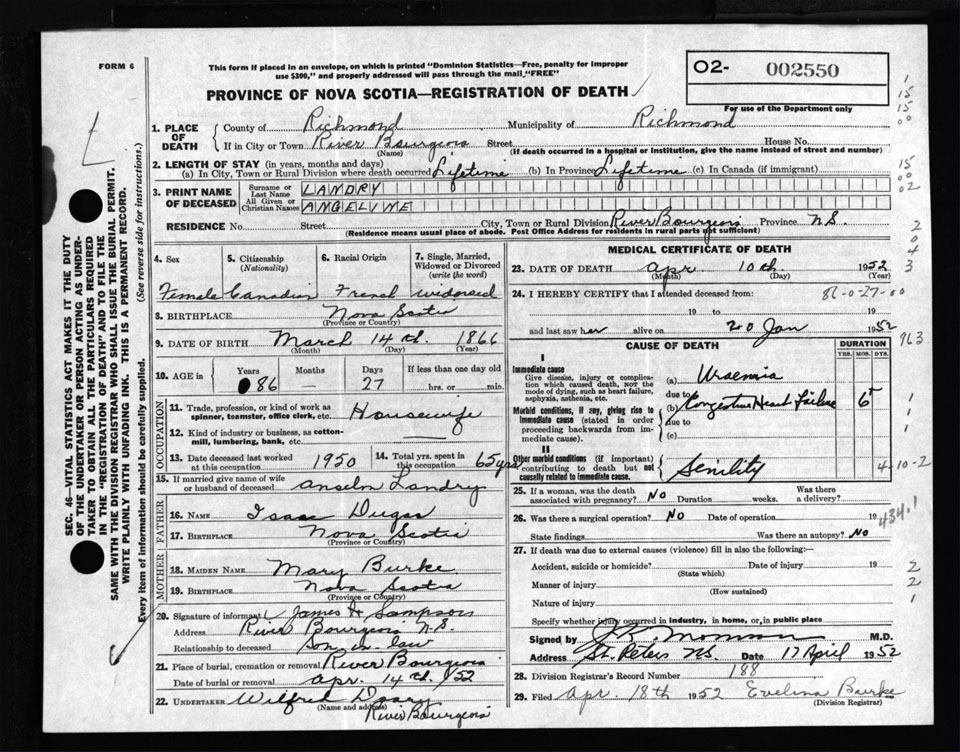 FORM 6
This form if placed in an envelope, on which is printed "Dominion Statistics—Free, penalty for improper
use $300," and properly addressed will pass through the mail "FREE"
PROVINCE OF NOVA SCOTIA—REGISTRATION OF DEATH
O2- 002550
For use of the Department only
1. PLACE OF DEATH County of Richmond Municipality of Richmond
If in City or Town River Bourgeois Street House No.
(Name) (If death occurred in a hospital or institution, give the name instead of street and number)
2. LENGTH OF STAY (in years, months and days)
(a) In City, Town or Rural Division where death occurred Lifetime (b) In Province Lifetime (c) In Canada (if immigrant)
3. PRINT NAME OF DECEASED Surname or Last Name LANDRY
All Given or Christian Names ANGELINE
RESIDENCE No. Street City, Town or Rural Division River Bourgeois Province N.S.
(Residence means usual place of abode. Post Office Address for residents in rural parts not sufficient)
4. Sex 5. Citizenship (Nationality) 6. Racial Origin 7. Single, Married, Widowed or Divorced (write the word)
Female Canadian French widowed
8. BIRTHPLACE Nova Scotia
(Province or Country)
9. DATE OF BIRTH March 14th. 1866
(Month) (Day) (Year)
10. AGE in Years Months Days If less than one day old
86 — 27 hrs. or min.
OCCUPATION
11. Trade, profession or kind of work as spinner, teamster, office clerk, etc. Housewife
12. Kind of industry or business, as cotton-mill, lumbering, bank, etc.
13. Date deceased last worked at this occupation 1950 14. Total yrs. spent in this occupation 65 yrs
15. If married give name of wife or husband of deceased Anselm Landry
FATHER
16. NAME Isaac Dugas
17. BIRTHPLACE Nova Scotia
(Province or Country)
MOTHER
18. MAIDEN NAME Mary Burke
19. BIRTHPLACE Nova Scotia
(Province or Country)
20. Signature of informant James H Sampson
Address River Bourgeois N.S.
Relationship to deceased Son in law
21. Place of burial, cremation or removal River Bourgeois
Date of burial or removal Apr. 14th. /52
22. UNDERTAKER Wilfred
(Name and address) River Bourgeois
MEDICAL CERTIFICATE OF DEATH
23. DATE OF DEATH Apr 10th 1952
(Month) (Day) (Year)
24. I HEREBY CERTIFY that I attended deceased from 86-0-27-00
19 to 19
and last saw her alive on 20 Jan 1952
CAUSE OF DEATH DURATION
YRS. MOS. DYS.
I
Immediate cause
Give disease, injury or complication which caused death, NOT the mode of dying, such as heart failure, asphyxia, asthenia, etc. (a) Uraemia
due to
Morbid conditions, if any, giving rise to immediate cause (stated in order proceeding backwards from immediate cause). (b) Congestive Heart Failure 6
due to
(c)
II
Other morbid conditions (if important) contributing to death but not causally related to immediate cause. Senility
4-10-2
25. If a woman, was the death associated with pregnancy? No Duration weeks. Was there a delivery?
26. Was there a surgical operation? No Date of operation 19
434.1
State findings Was there an autopsy? No
27. If death was due to external causes (violence) fill in also the following:—
Accident, suicide or homicide? Date of injury 19
(State which)
Manner of injury
(How sustained)
Nature of injury
Specify whether injury occurred in industry, in home, or in public place
Signed by M.D.
Address St. Peters NS. Date 17 April 1952
28. Division Registrar's Record Number 188
29. Filed Apr. 18th 1952 Evelina Burke
(Division Registrar)
SEC. 46—VITAL STATISTICS ACT MAKES IT THE DUTY
OF THE UNDERTAKER OR PERSON ACTING AS UNDER-
TAKER TO OBTAIN ALL THE PARTICULARS REQUIRED
IN THE "REGISTRATION OF DEATH" AND TO FILE THE
SAME WITH THE DIVISION REGISTRAR WHO SHALL ISSUE THE BURIAL PERMIT.
WRITE PLAINLY WITH UNFADING INK. THIS IS A PERMANENT RECORD.
Every item of information should be carefully supplied. (See reverse side for instructions.)
1
15
15
00
15
00
02
2
0
4
3
963
1
1
2
2
1